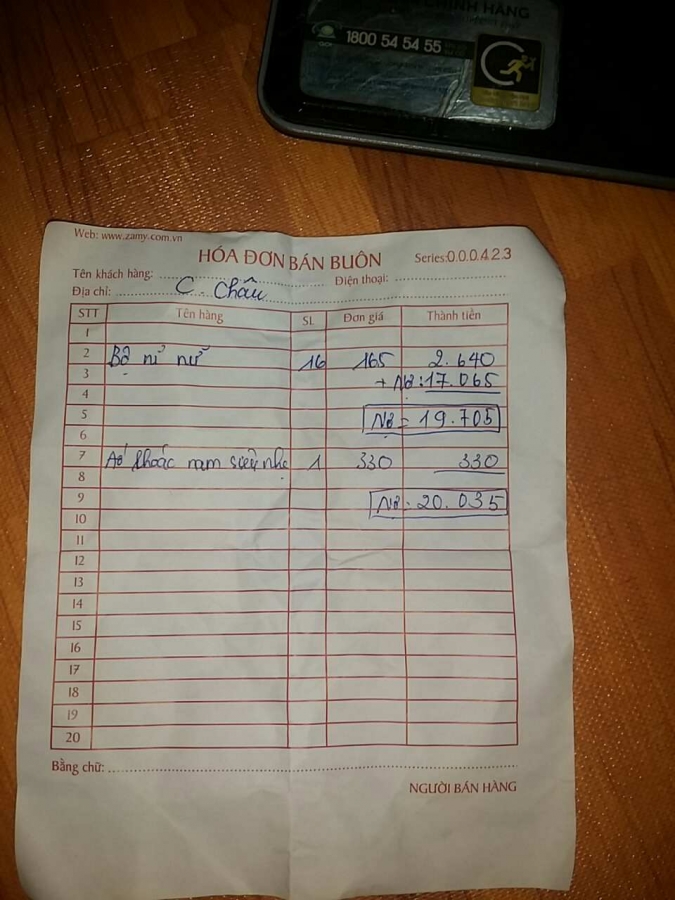 CHÍNH HÃNG
1800 54 54 55
Web: www.zamy.com.vn
HÓA ĐƠN BÁN BUÔN
Series:000423
Tên khách hàng: Điện thoại:
Địa chỉ: C. Châu
STT Tên hàng SL Đơn giá Thành tiền
1
2 Bộ nỉ nữ 16 165 2.640
3 + Nợ: 17.065
4
5 Nợ = 19.705
6
7 Áo khoác nam siêu nhẹ 1 330 330
8
9 Nợ: 20.035
10
11
12
13
14
15
16
17
18
19
20
Bằng chữ:
NGƯỜI BÁN HÀNG